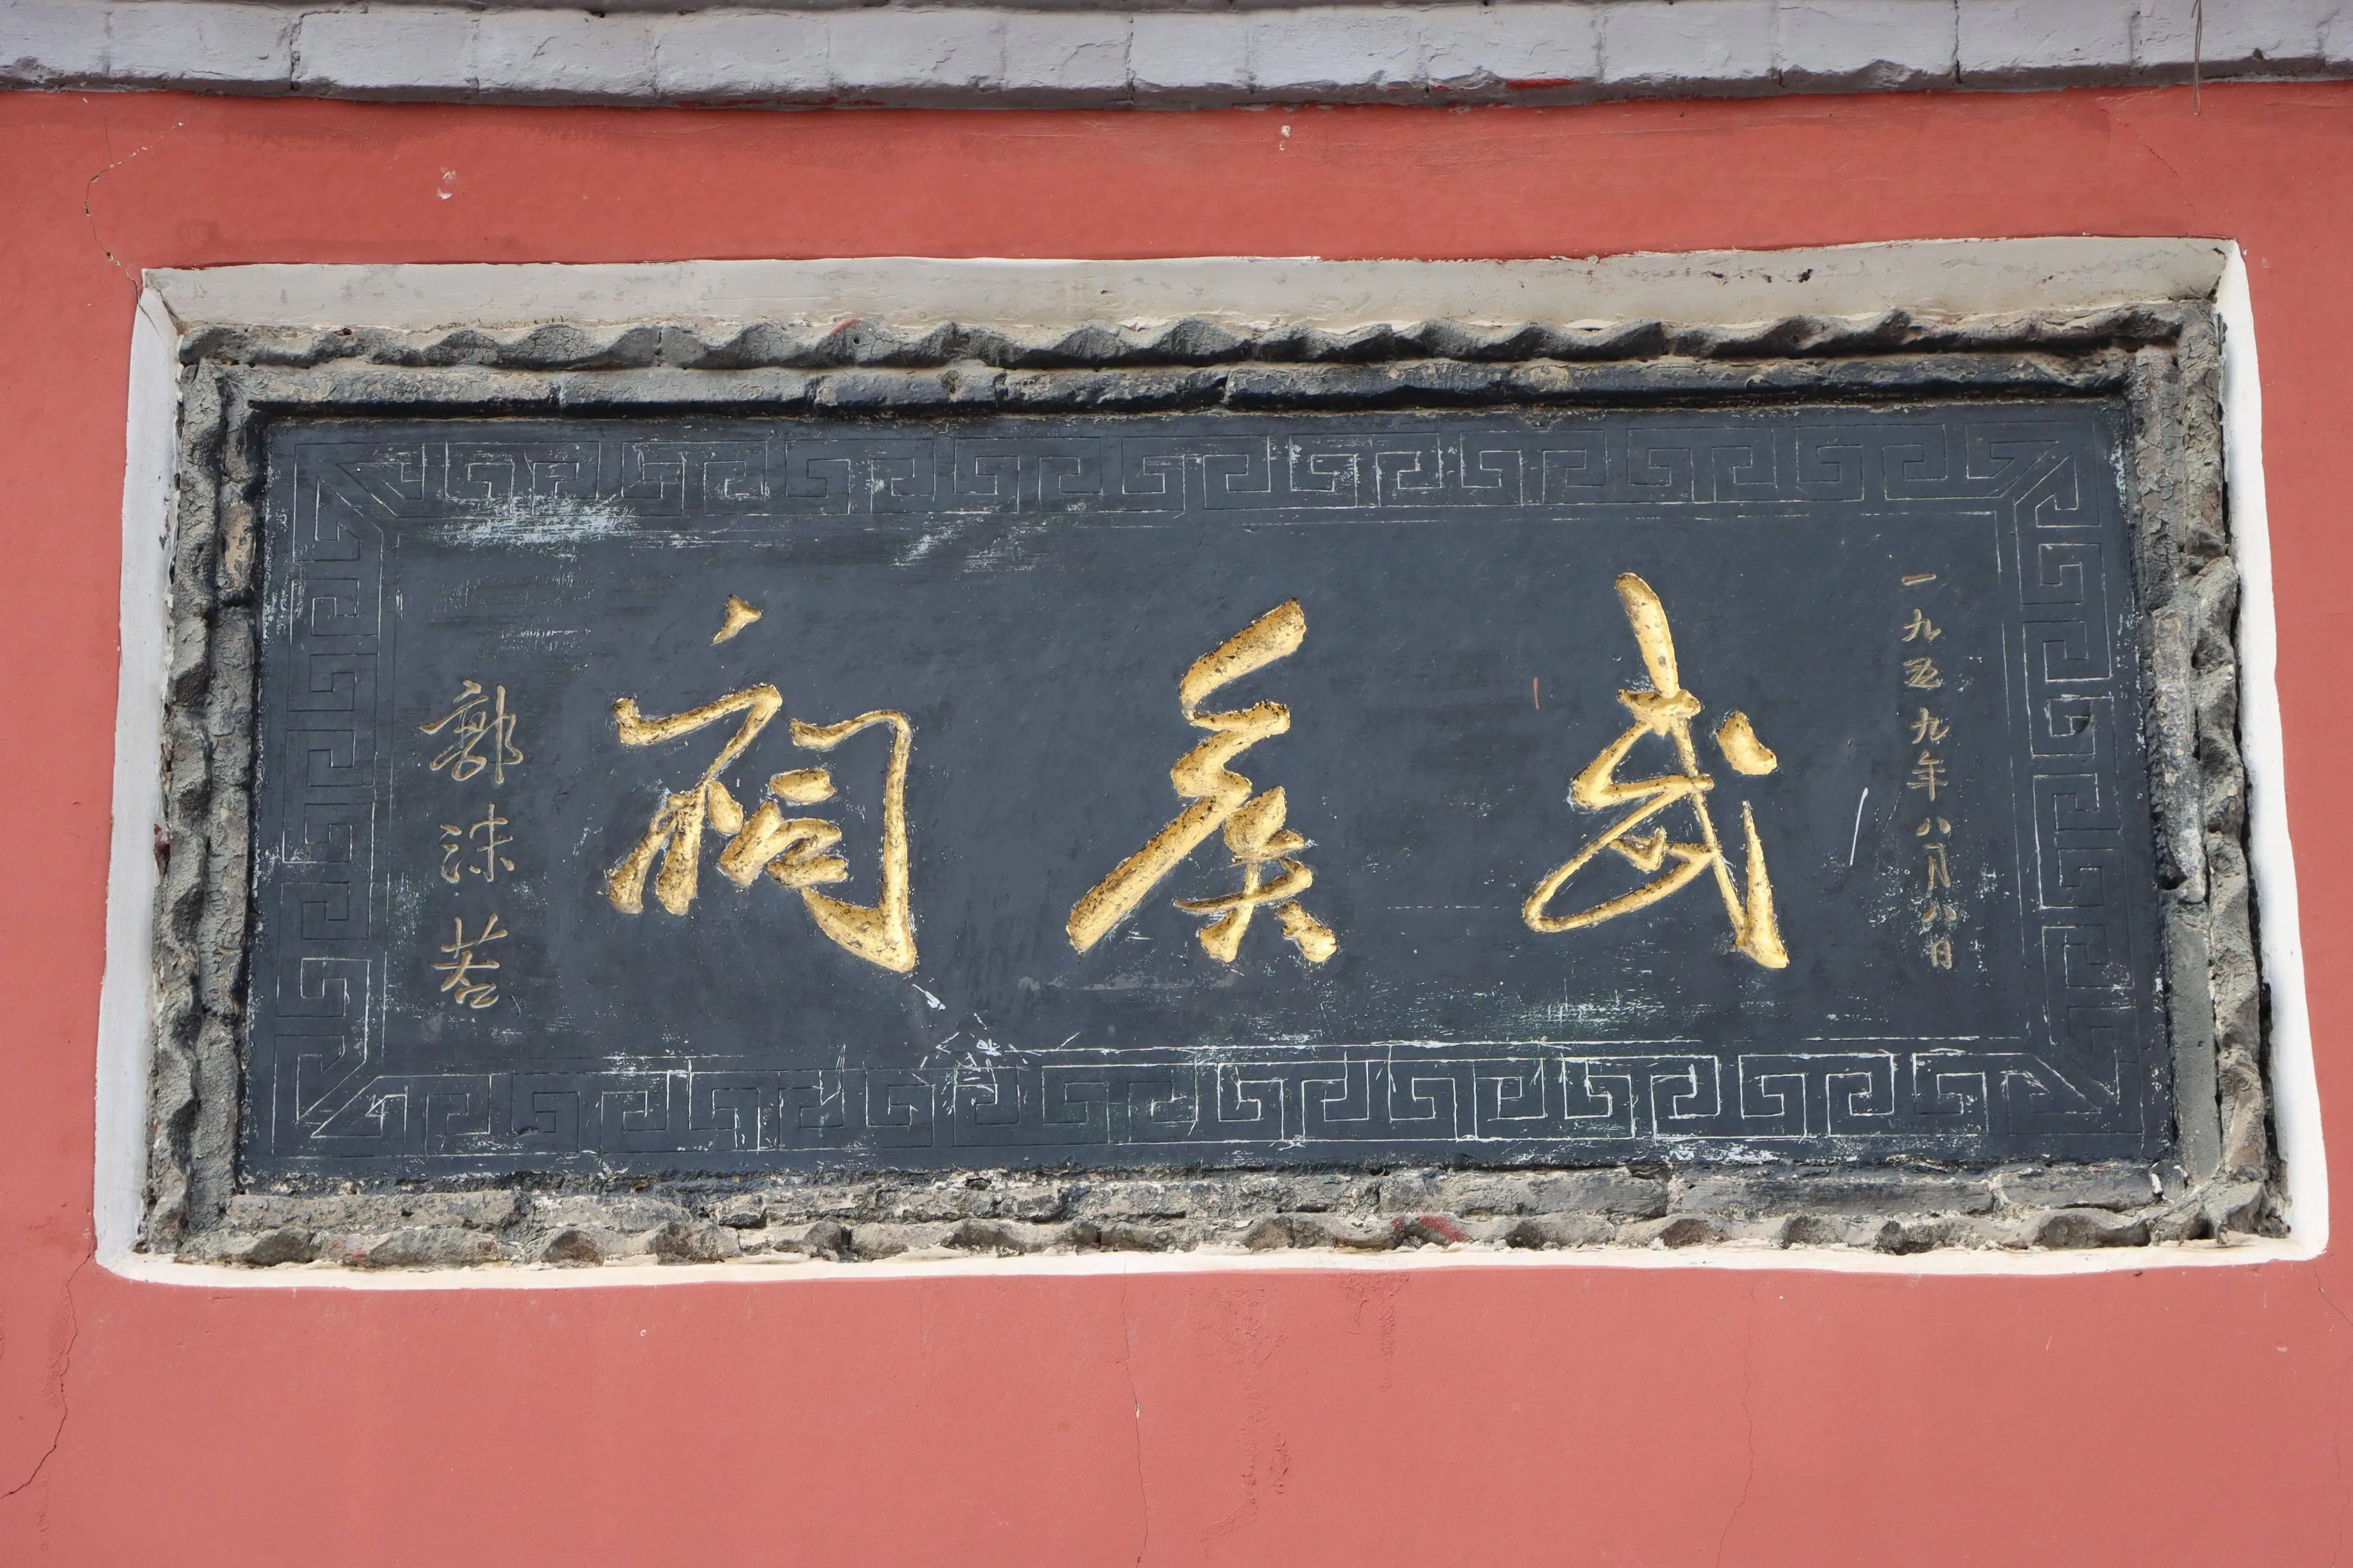 一九五九年八月八日
武侯祠
郭沫若